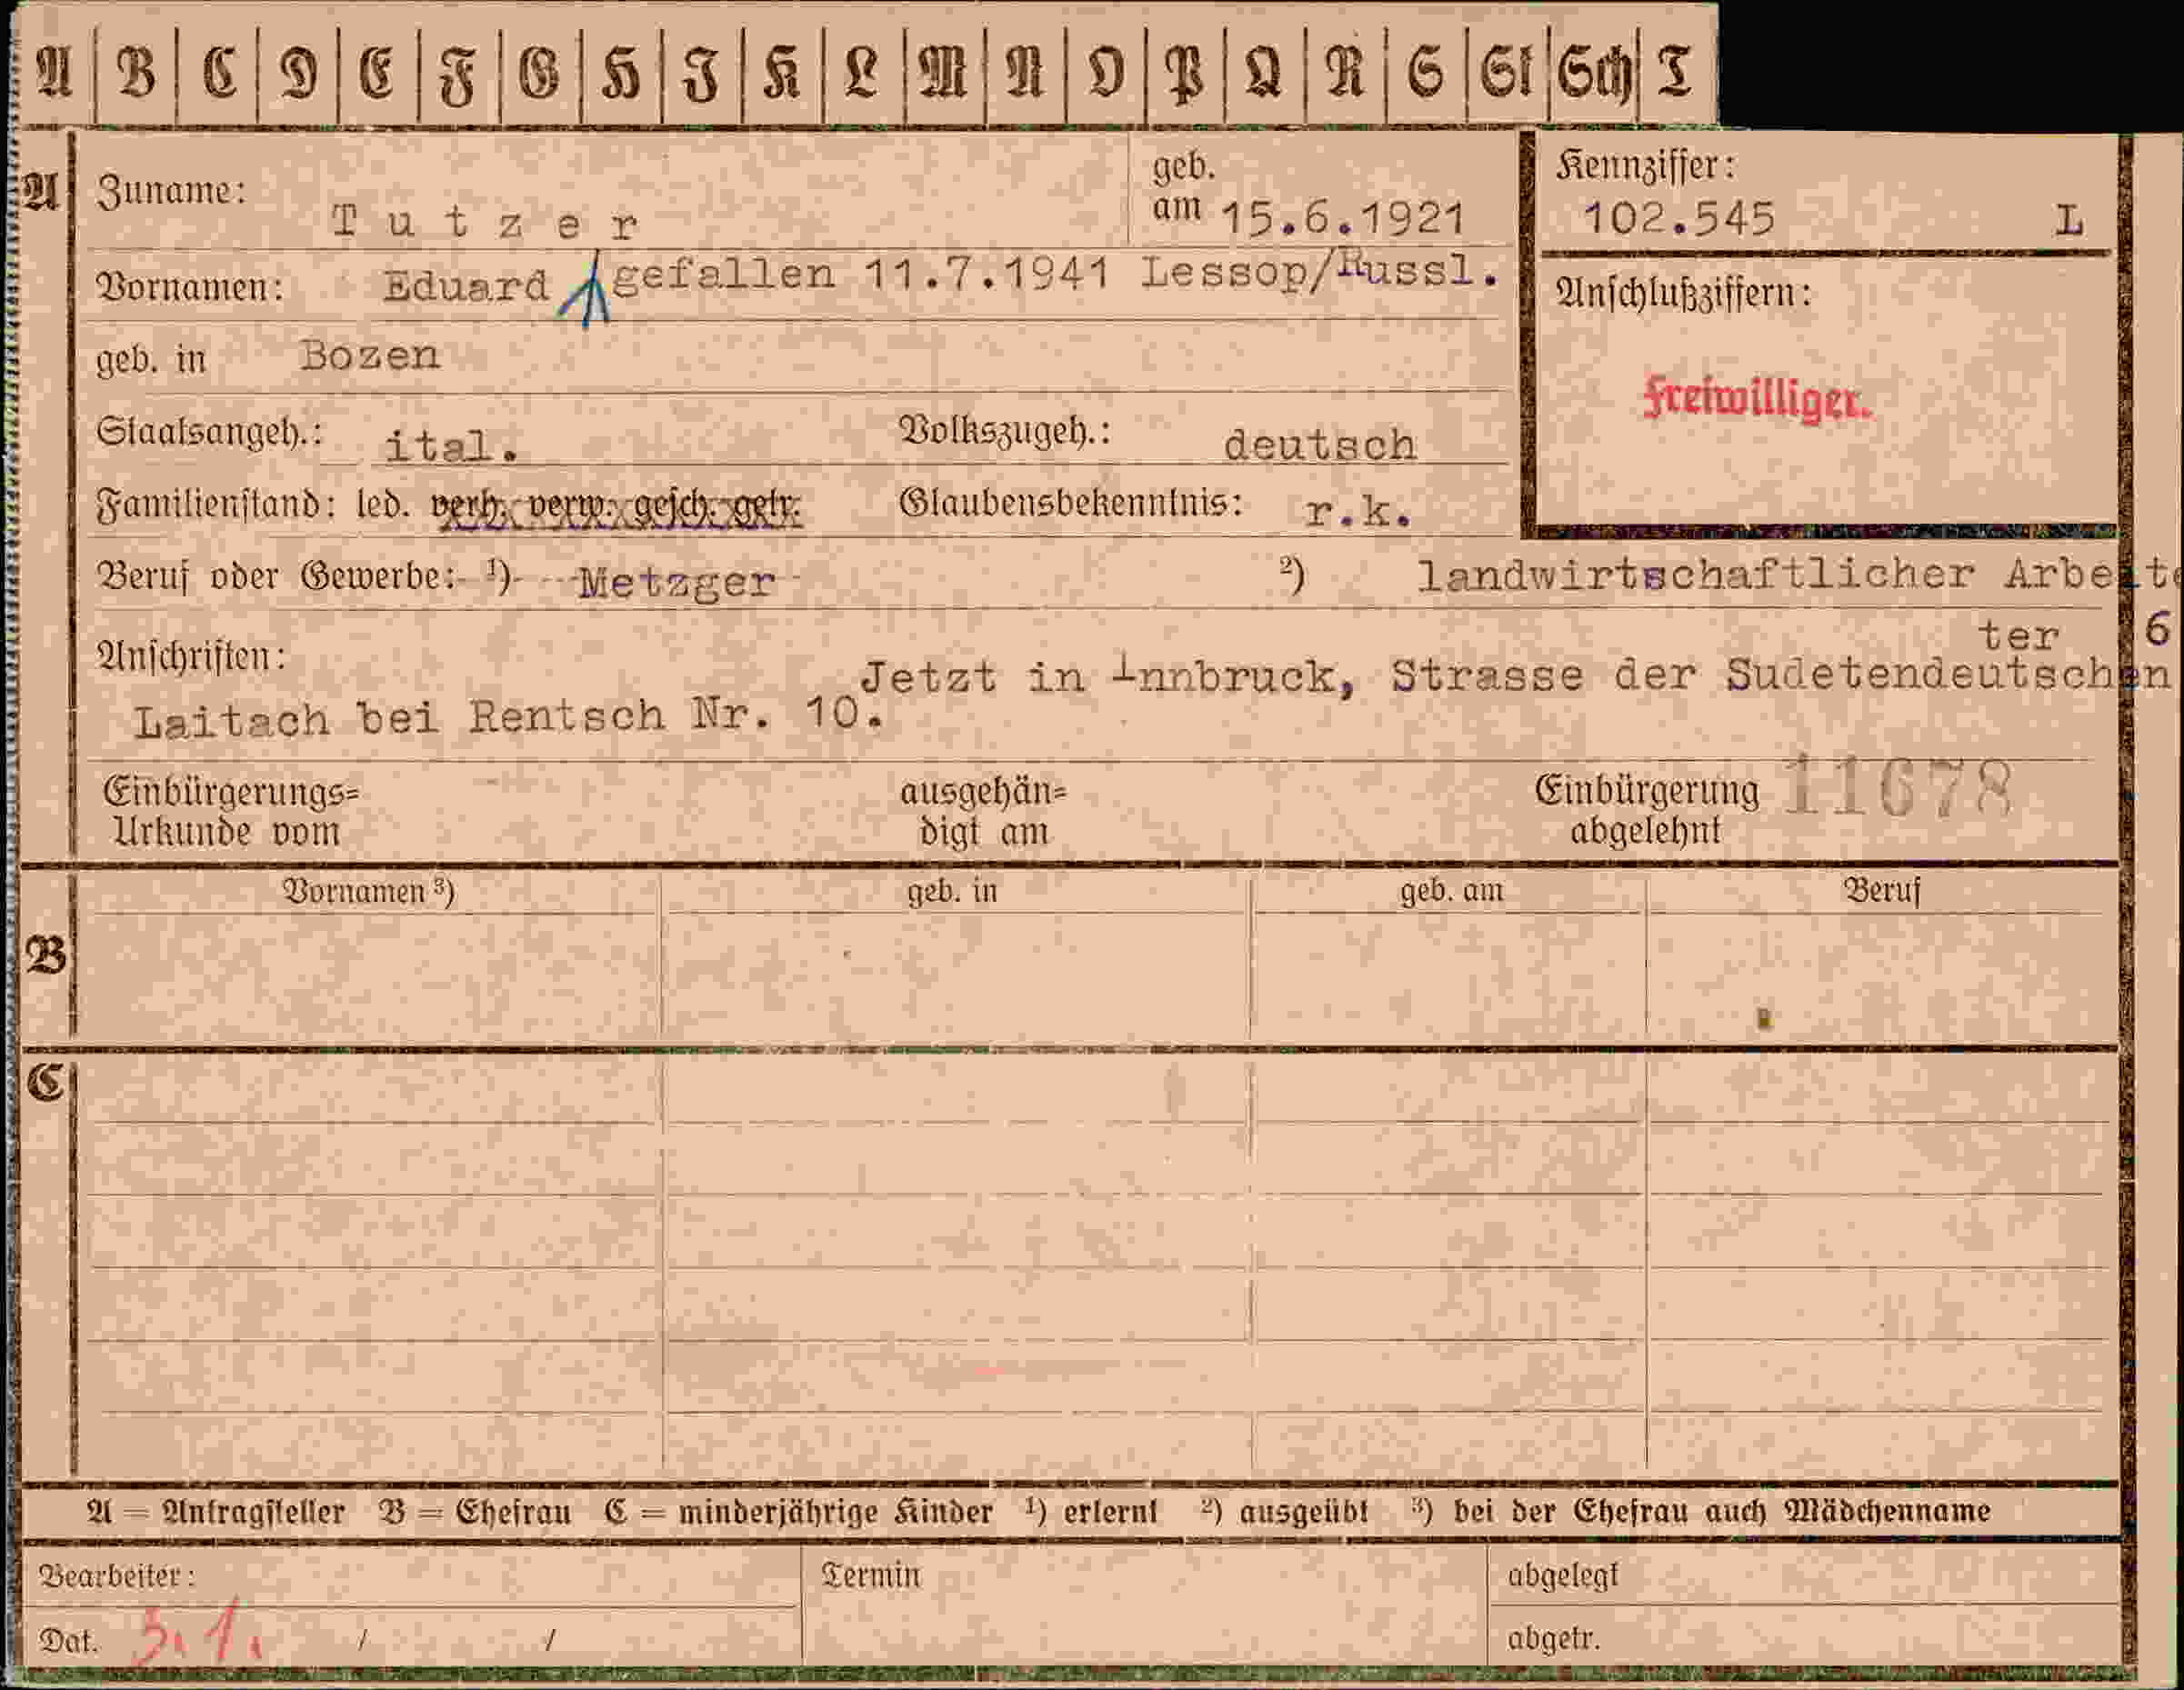 A B C D E F G H I K L M N O P Q R S St Sch T
A Zuname: T u t z e r geb. am 15.6.1921 Kennziffer: 102.545 L
Vornamen: Eduard gefallen 11.7.1941 Lessop/Russl. Anschlußziffern:
geb. in Bozen Freiwilliger.
Staatsangeh.: ital. Volkszugeh.: deutsch
Familienstand: led. verh. verw. gesch. getr. Glaubensbekenntnis: r.k.
Beruf oder Gewerbe: ¹) Metzger ²) landwirtschaftlicher Arbeite
ter 6
Anschriften: Jetzt in Innbruck, Strasse der Sudetendeutschen
Laitach bei Rentsch Nr. 10.
Einbürgerungs= ausgehän= Einbürgerung 11678
Urkunde vom digt am abgelehnt
Vornamen ³) geb. in geb. am Beruf
B
C
A = Antragsteller B = Ehefrau C = minderjährige Kinder ¹) erlernt ²) ausgeübt ³) bei der Ehefrau auch Mädchenname
Bearbeiter: Termin abgelegt
Dat. 3. 1. / / abgetr.